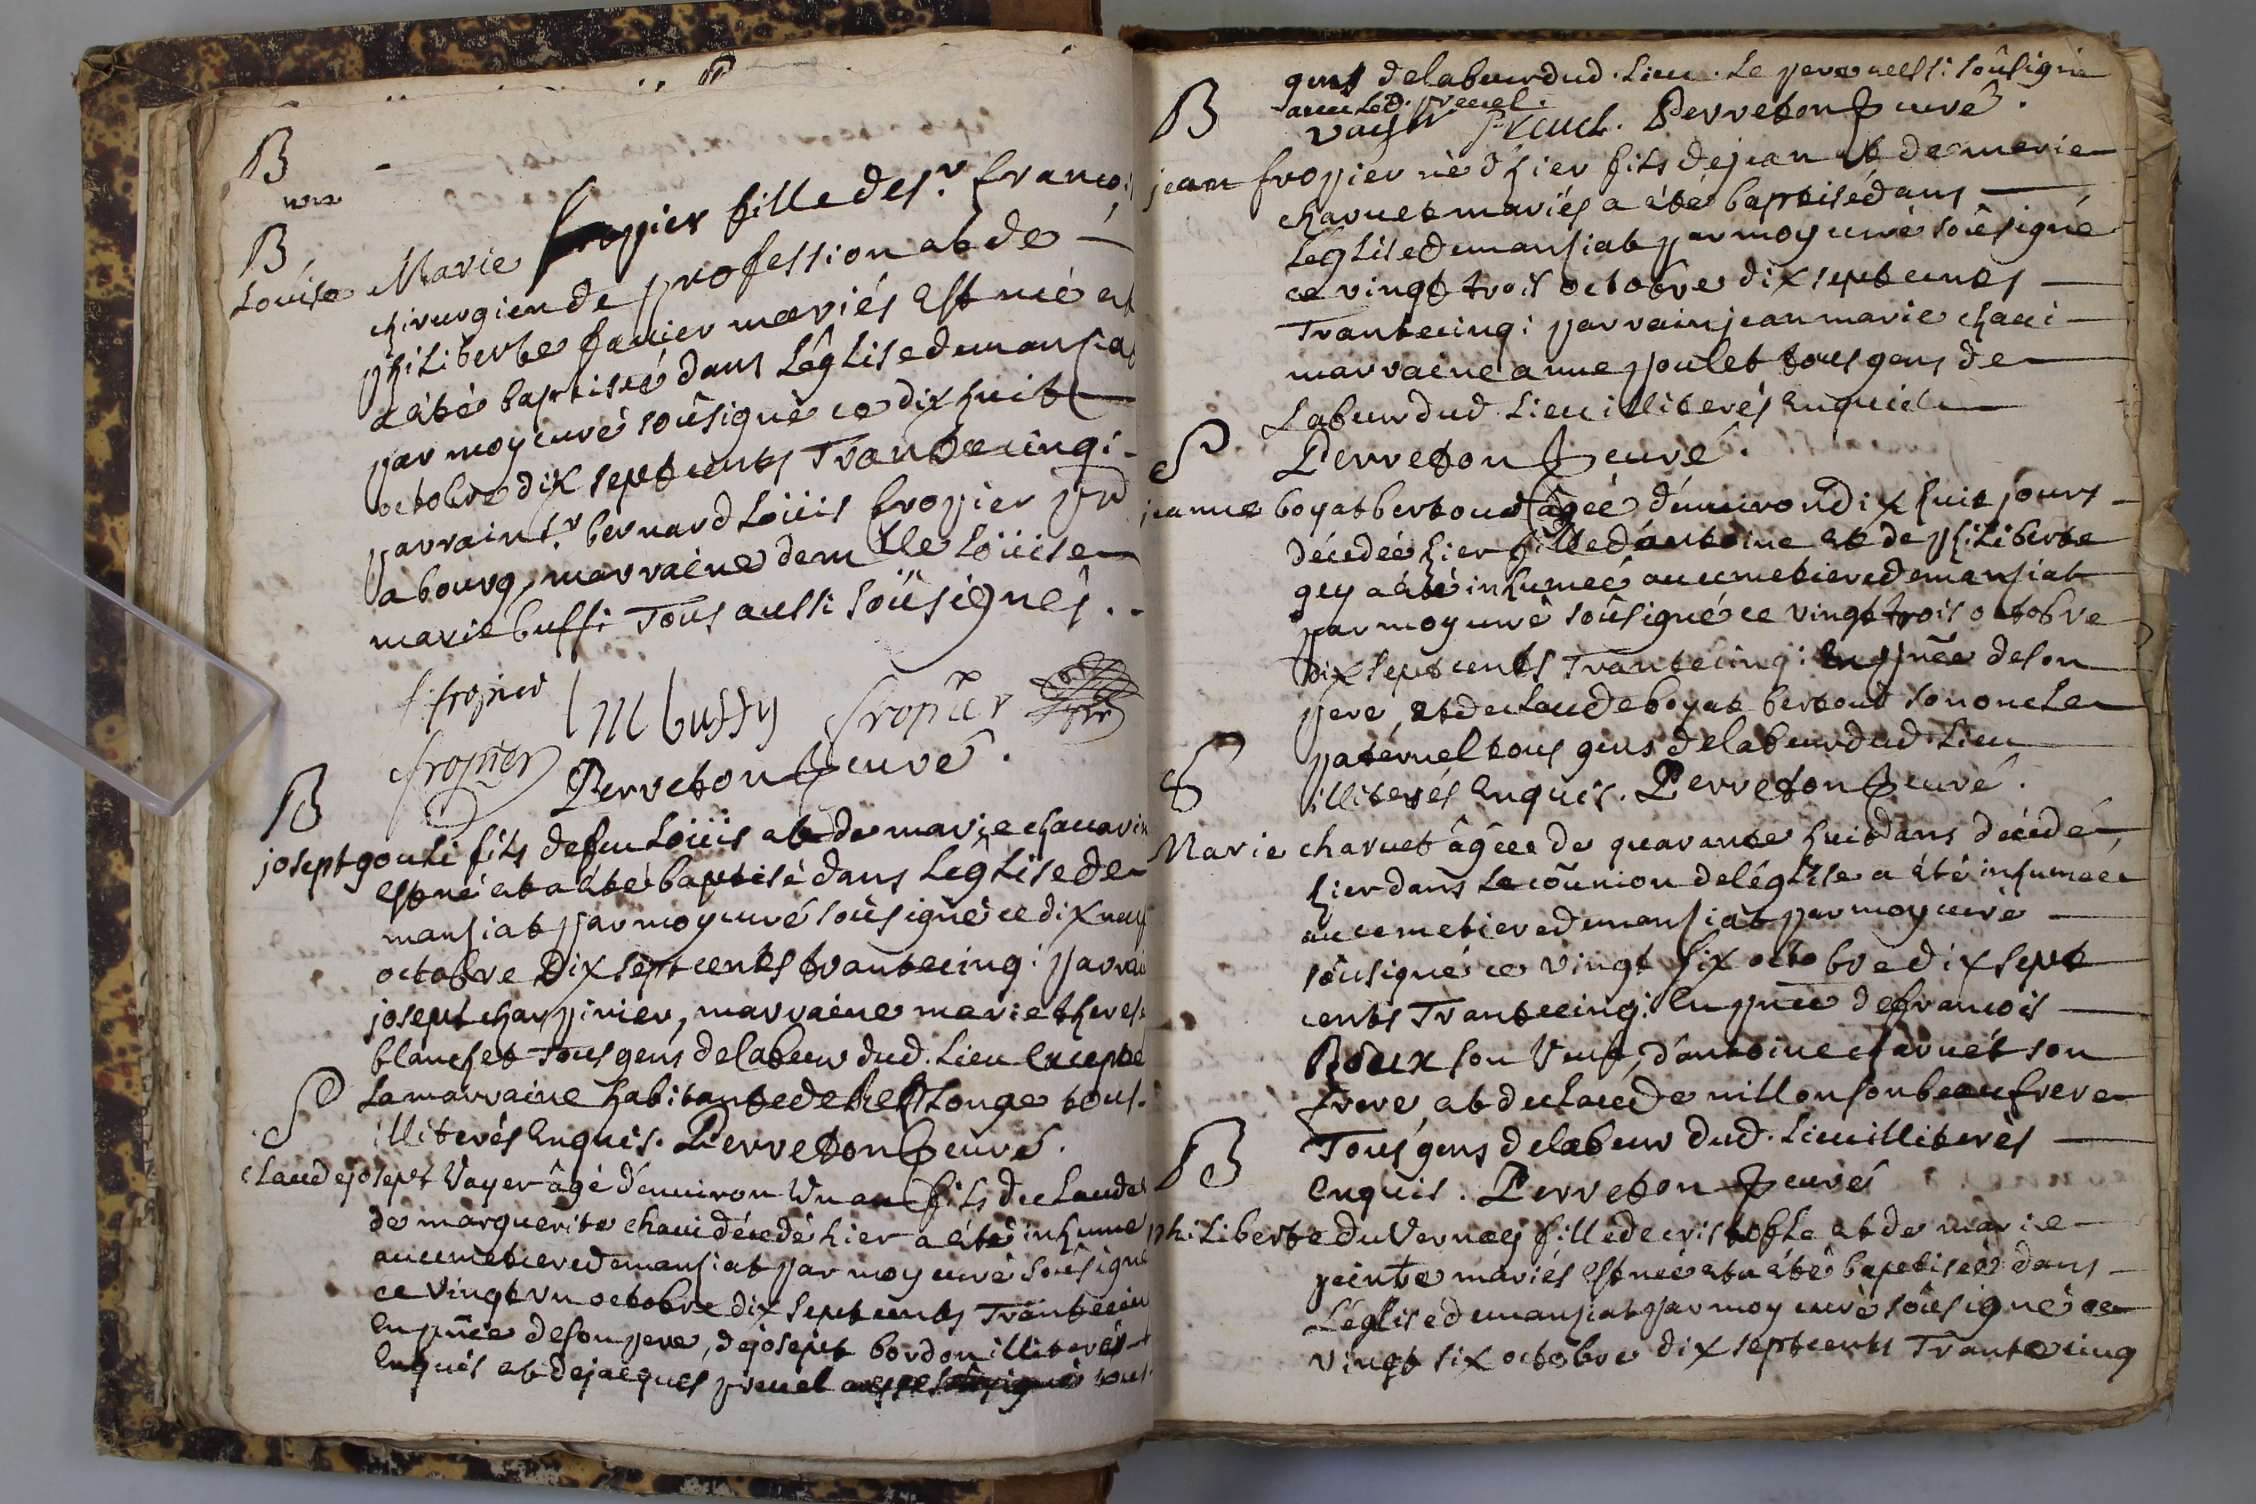 B
B
Loüise Marie fropier fille de s.r francois
chirurgien de profession et de
philiberte favier mariés est née et
a été baptisée dans l'église de mansiat
par moy curé soûsigné ce dix huit
octobre dix sept cents Trante cinq :
parrain s.r bernard Loüis fropier
a bourg, marraine demlle Loüise
marie buffi Tous aussi soûsignés . .
f. fropier LM buffy fropier
fropier Perreton curé .
B
josept gouli fils de feu Loüis et de marie chavarin
est né et a été baptisé dans l'église de
mansiat par moy curé soûsigné ce dix neuf
octobre Dix sept cents trante cinq : parrain
josept charpinier, marraine marie therese
blanchet Tous gens de labeur dud. Lieu Excepté
La marraine habitante de tous
S
illiterés Enquis. Perreton curé.
claude josept Vayer âgé d'environ Un an fils de claude
de marguerite chavi décédé hier a été inhumé
au cemetiere de mansiat par moy curé soûsigné
ce Vingt un octobre dix sept cents Trante cinq
En pñce de son pere, de josept bordon illiterés
Enquis et de jacques prevel sous
gens de labeur dud. Lieu. Le pere aussi soûsigné
avec led. prevel.
B
vayer Prevel. Perreton curé .
jean fropier né d'hier fils de jean et de marie
charvet mariés a été baptisé dans
L'église de mansiat par moy curé soûsigné
ce vingt trois octobre dix sept cents
Trante cinq : parrain jean marie chavi
marraine anne poulet tous gens de
Labeur dud Lieu illiterés Enquis
S
Perreton curé .
jeanne boyat bertoud âgée d'environ Dix huit jours
décédée hier fille d'antoine et de philiberte
gey a été inhumeé au cemetiere de mansiat
par moy curé soûsigné ce vingt trois octobre
dix sept cents Trante cinq : En pñce de son
pere, et de claude boyat bertoud son oncle
paternel tous gens de labeur dud. Lieu
S
illiterés Enquis. Perreton curé .
Marie charvet âgée de quarante huit ans décédé
hier dans la coũnion de l'église a été inhumée
au cemetiere de mansiat par moy curé
soûsigné ce vingt six octobre dix sept
cents Trante cinq : En pñce de francois
Roux son Veuf, d'antoine charvet son
frere, et de claude nillon son beau frere
B
Tous gens de labeur dud. Lieu illiterés
Enquis. Perreton curé
philiberte du Vernay fille de cristofle et de marie
peinte mariés est née et a été baptisée dans
L'église de mansiat par moy curé soûsigné ce
vingt six octobre dix sept cents Trante cinq